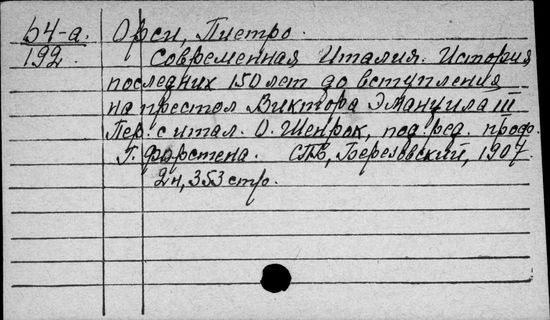 64-а. Орси, Пиетро.
192. Современная Италия. История
последних 150 лет до вступления
на престол Виктора Эмануила III
Пер. с итал. О. Шенрок, под ред. проф.
Г. Форстена. СПБ, Березовский, 1907.
2н, 353 стр.